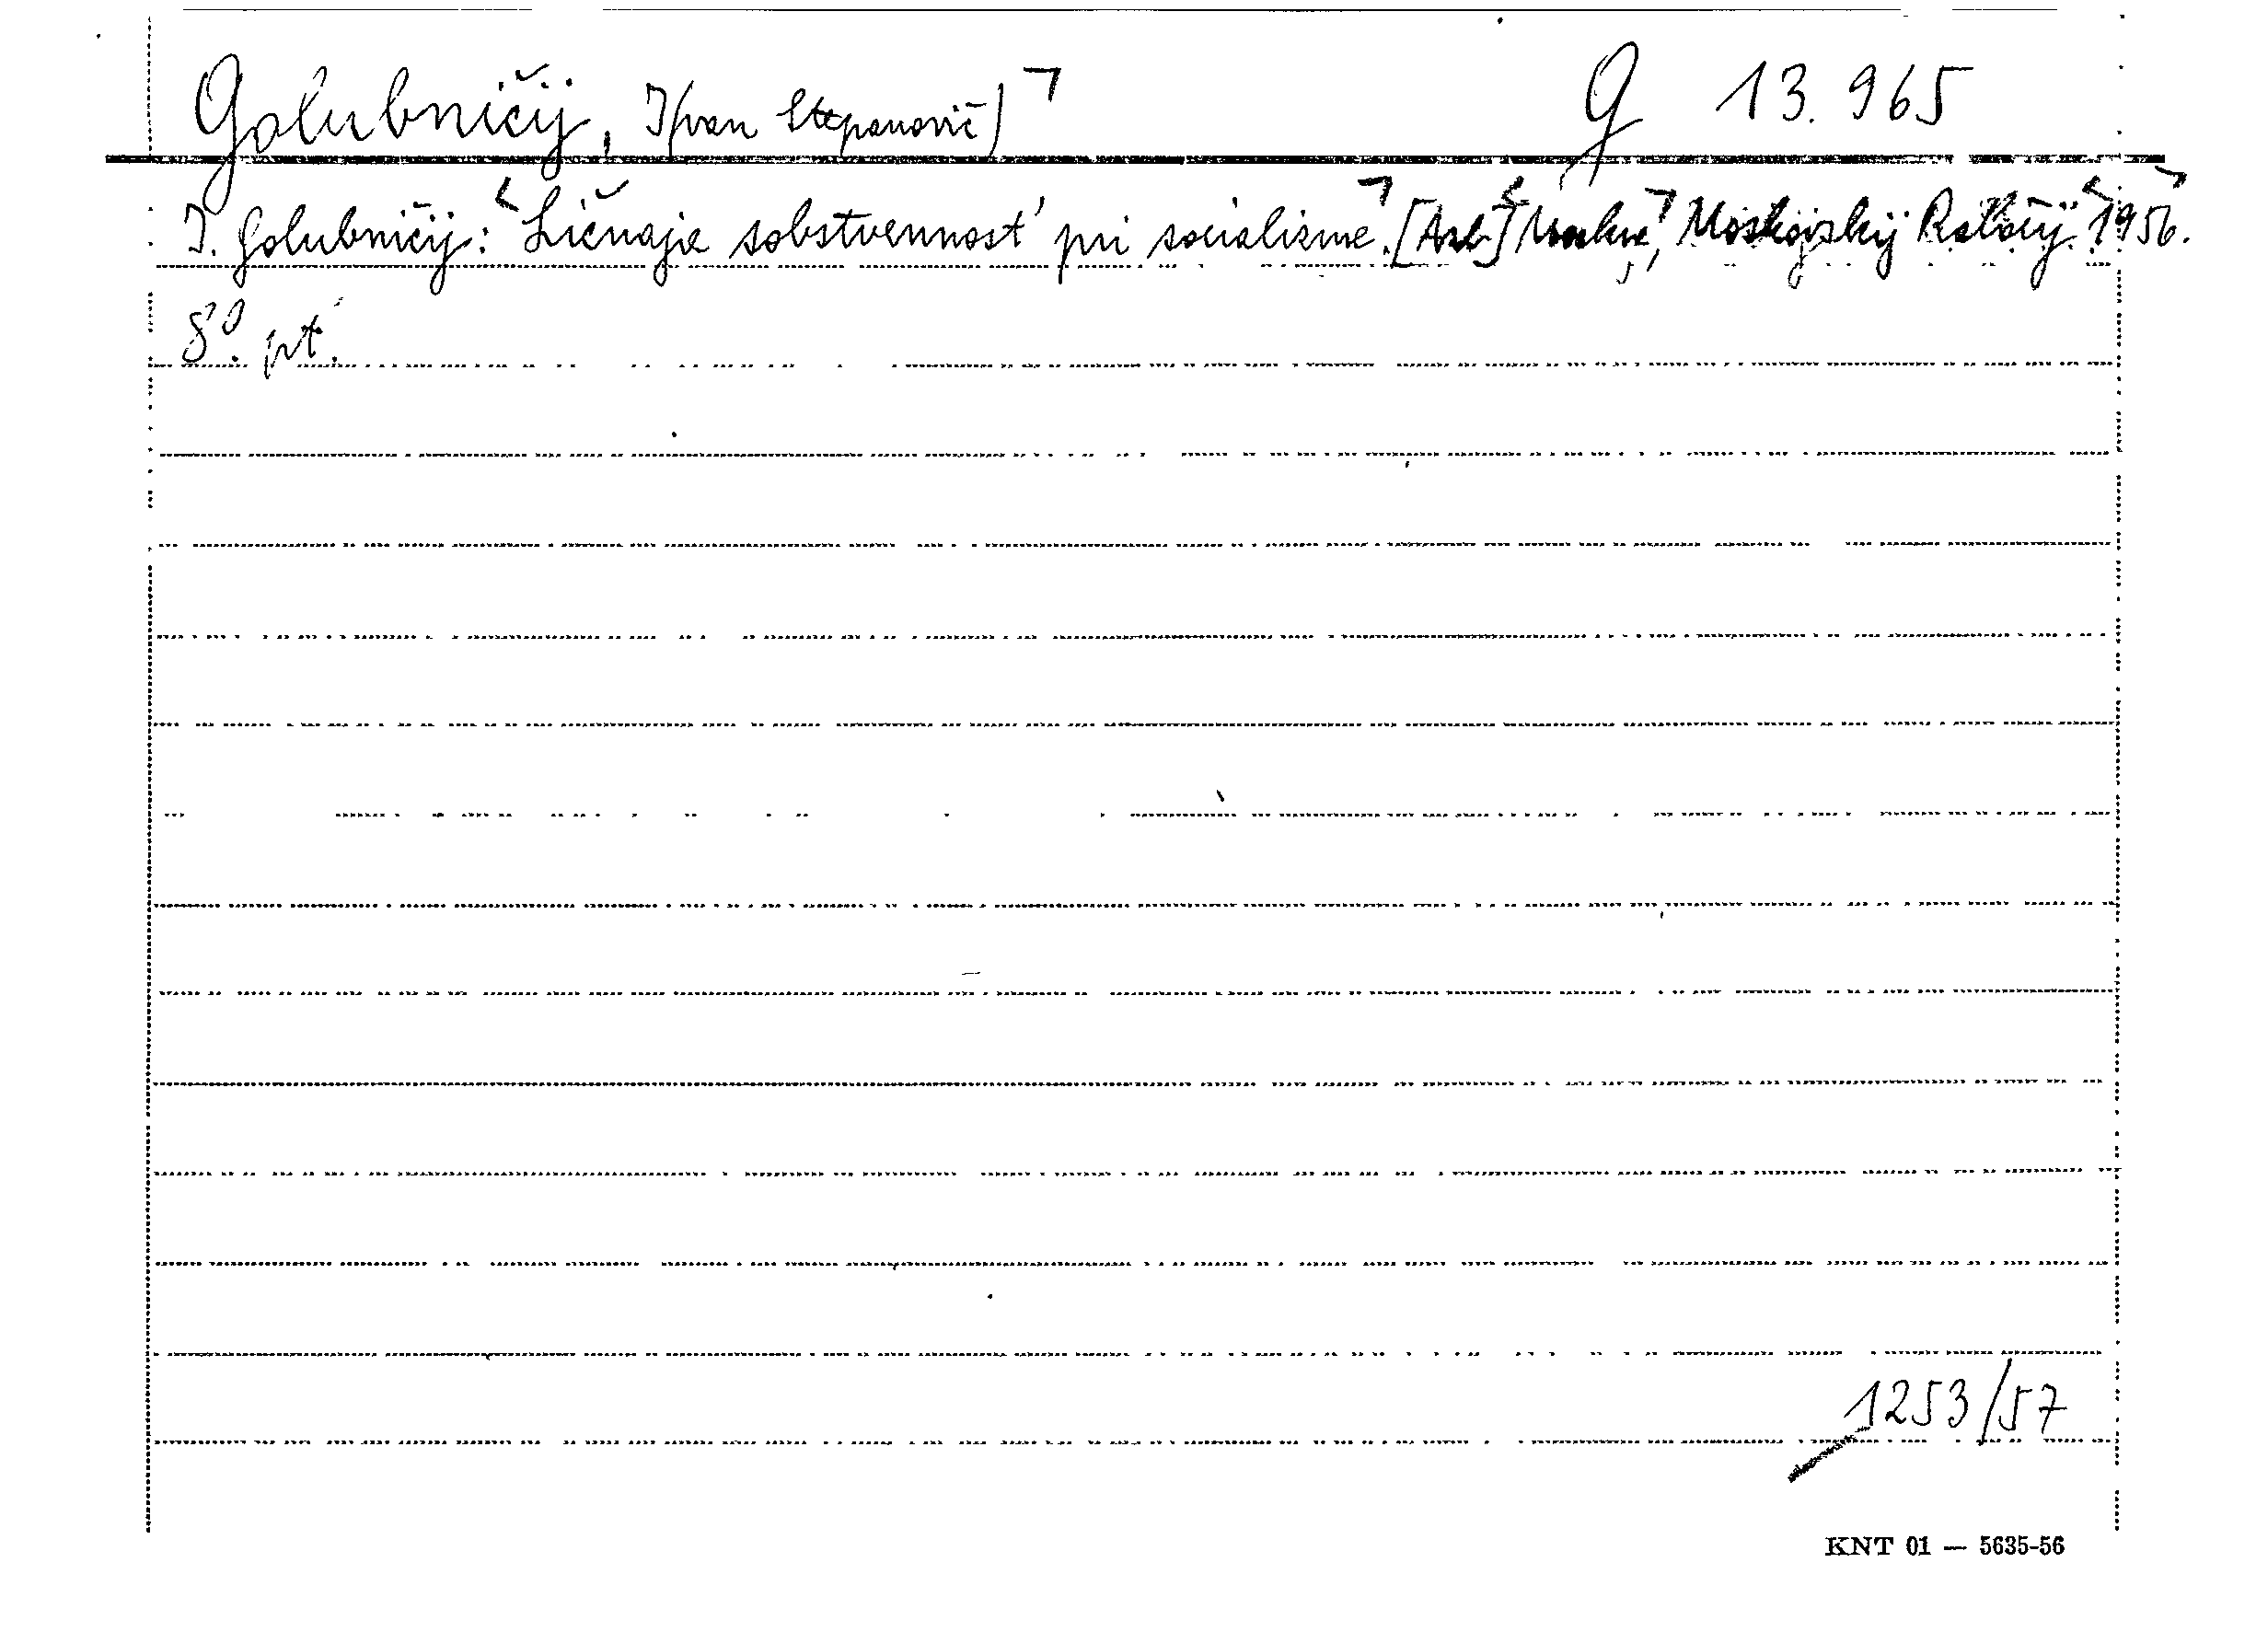 Golubničij, I(van Stepanovič) G 13.965
I. Golubničij: Ličnaja sobstvennost' pri socialisme. Moskva, Moskovskij Rabočij 1956.
8°. pt.
1253/57
KNT 01 — 5635-56